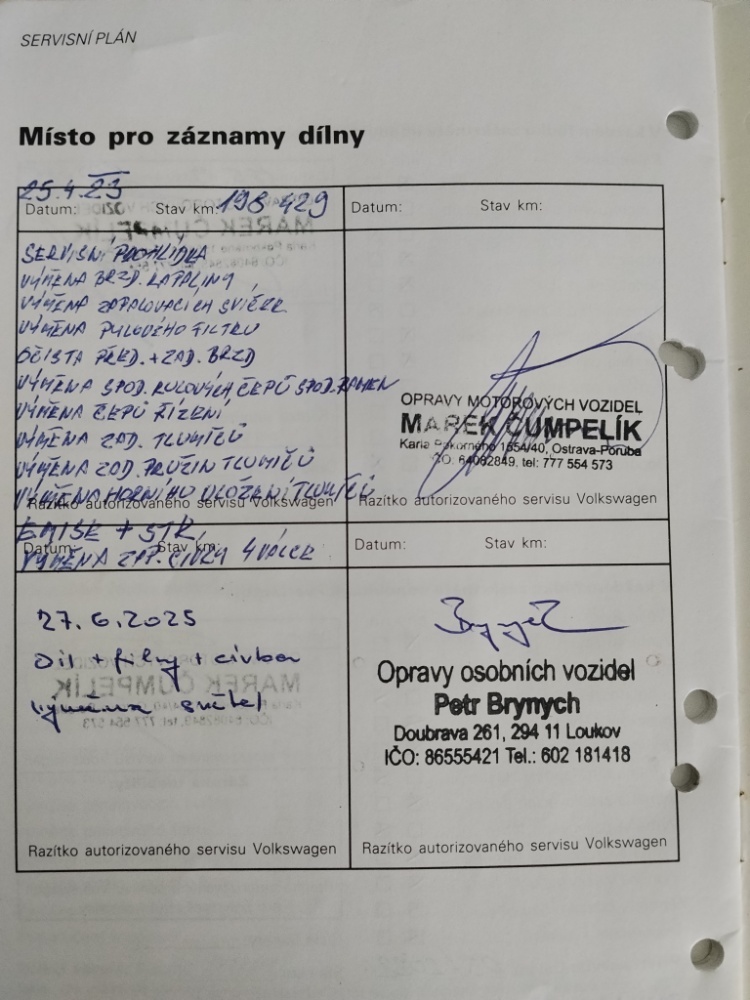 SERVISNÍ PLÁN
Místo pro záznamy dílny
25.4.23
Datum: Stav km: 198 429
SERVISNÍ PROHLÍDKA
VÝMĚNA BRZD. KAPALINY
VÝMĚNA ZAPALOVACÍCH SVÍČEK
VÝMĚNA PYLOVÉHO FILTRU
ČISTA PŘED. + ZAD. BRZD
VÝMĚNA SPOD. KULOVÝCH ČEPŮ SPOD. RAMEN
VÝMĚNA ČEPŮ ŘÍZENÍ
VÝMĚNA ZAD. TLUMIČŮ
VÝMĚNA ZAD. PRUŽIN TLUMIČŮ
VÝMĚNA HORNÍHO ULOŽENÍ TLUMIČŮ
Razítko autorizovaného servisu Volkswagen
Datum: Stav km:
OPRAVY MOTOROVÝCH VOZIDEL
MAREK ČUMPELÍK
Karla Pokorného 1554/40, Ostrava-Poruba
IČO: 64082849, tel: 777 554 573
Razítko autorizovaného servisu Volkswagen
EMISE + STK
Datum: Stav km:
VÝMĚNA ZAP. CÍVKY 4 VÁLEC
27.6.2025
Oil + filtry +
výměna světel
Razítko autorizovaného servisu Volkswagen
Datum: Stav km:
Opravy osobních vozidel
Petr Brynych
Doubrava 261, 294 11 Loukov
IČO: 86555421 Tel.: 602 181418
Razítko autorizovaného servisu Volkswagen